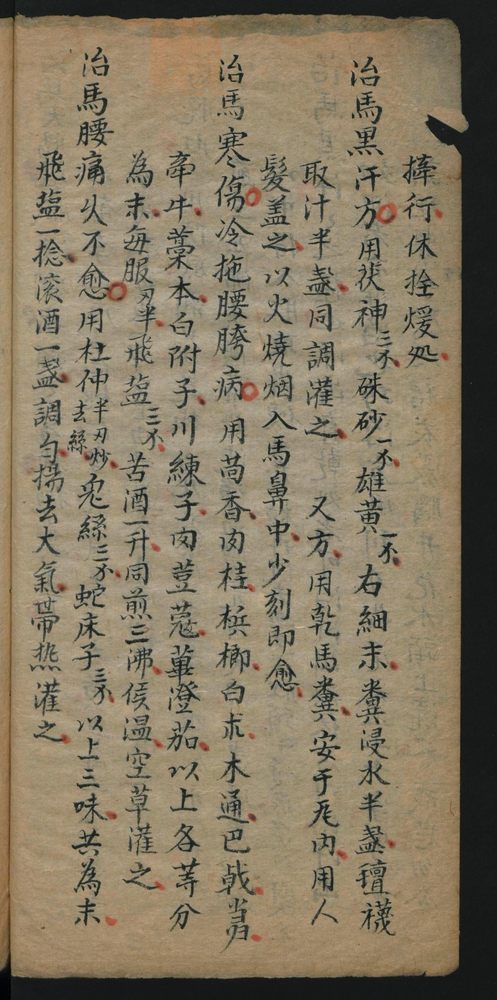 撁行休拴煖処
治馬黑汗方用茯神三不硃砂一不雄黄一不右細末糞浸水半盞襪
取汁半盞同調灌之又方用乾馬糞安于尾內用人
髮盖之以火燒烟入馬鼻中少刻即愈
治馬寒傷冷拖腰胯病用茴香肉桂檳榔白朮木通巴戟當归
牽牛藁本白附子川練子肉荳蔻蓽澄茄以上各等分
為末每服刃半飛塩三不苦酒一升同煎三沸侯温空草灌之
治馬腰痛久不愈用杜仲半刃炒去絲兎絲三不蛇床子三不以上三味共為末
飛塩一捻滚酒一盞調匀揚去大氣帶热灌之